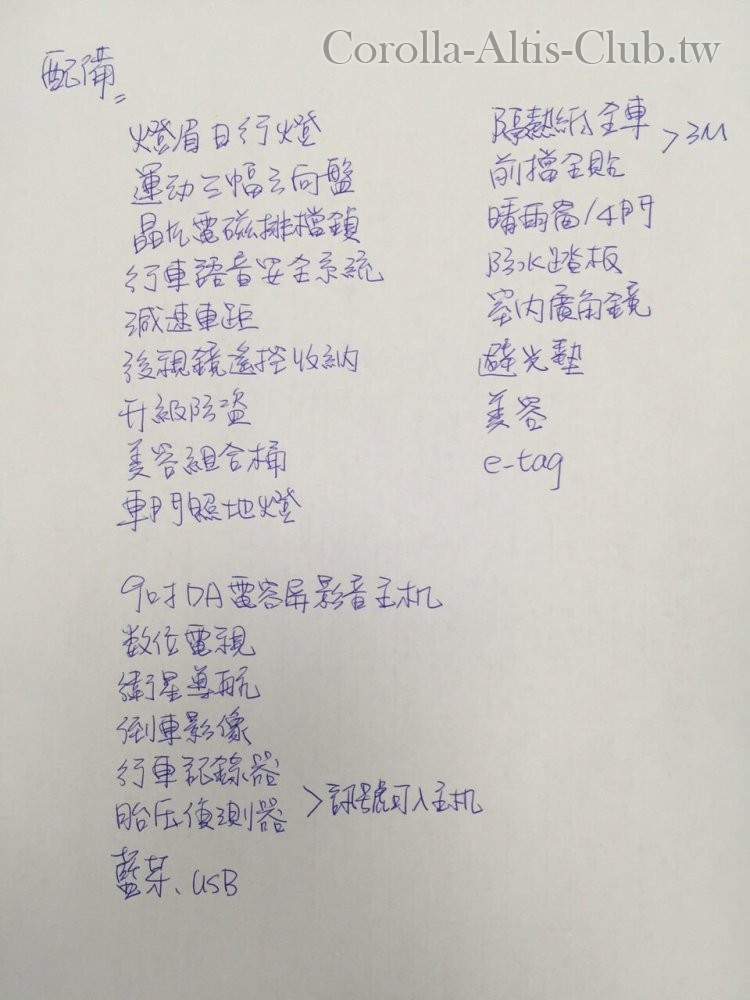 Corolla-Altis-Club.tw
配備
燈眉日行燈
運动三幅方向盤
晶片電磁排檔鎖
行車語音安全系統
減速車距
後視鏡遙控收納
升級防盜
美容組合桶
車門照地燈
9吋DA電容屏影音主机
数位電視
衛星導航
倒車影像
行車記錄器
胎压偵測器
>訊號可入主机
藍芽、USB
隔熱紙全車
前擋全貼
>3M
晴雨窗/4門
防水踏板
室内廣角鏡
避光墊
美容
e-tag